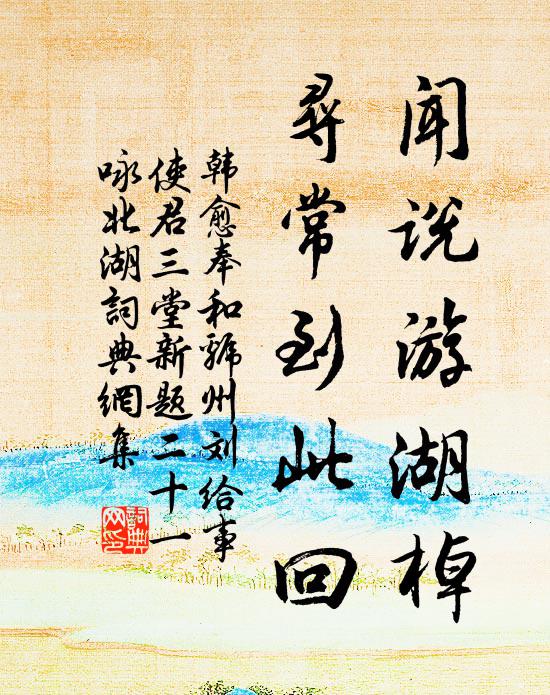 闻说游湖棹
寻常到此回
韩愈奉和虢州刘给事
使君三堂新题二十一
咏北湖詞典網集
詞典
网印